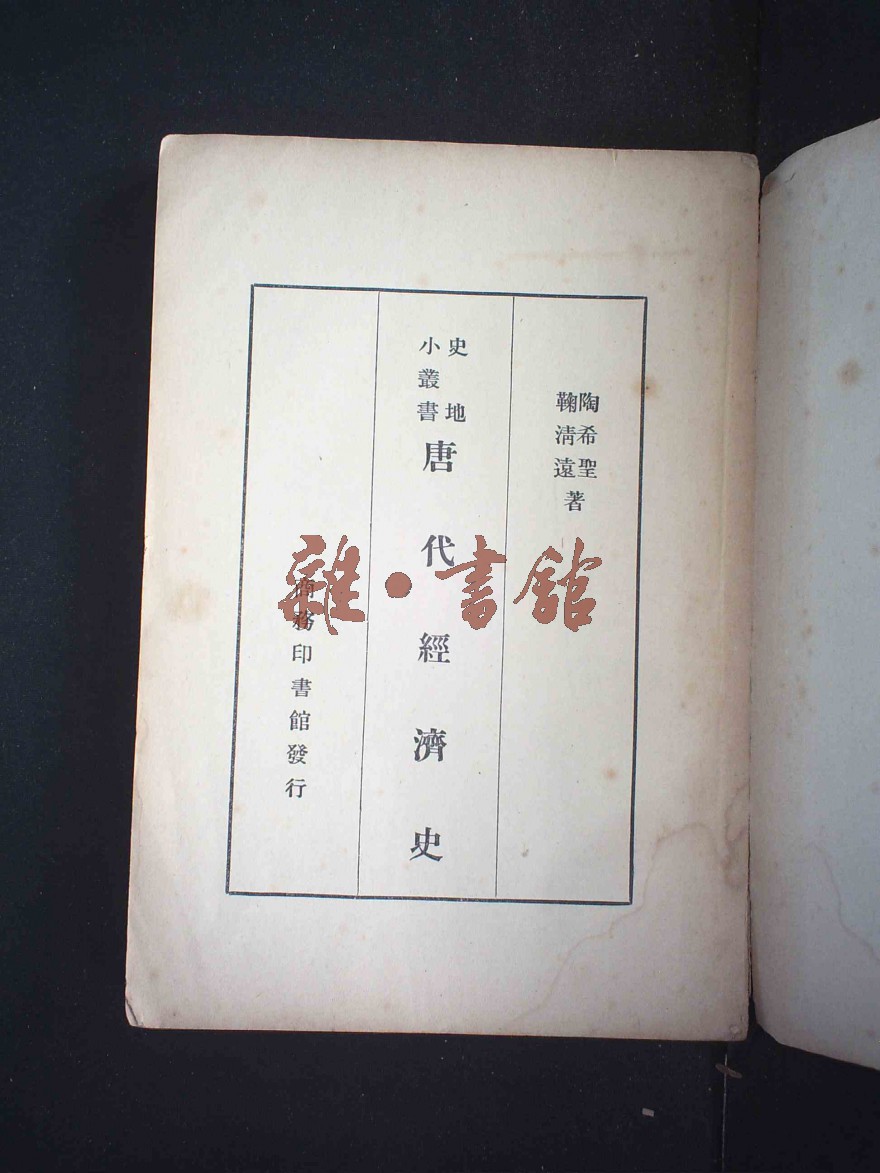 陶希聖
鞠清遠
著
史地
小叢書
唐代經濟史
商務印書館發行
雜·書館